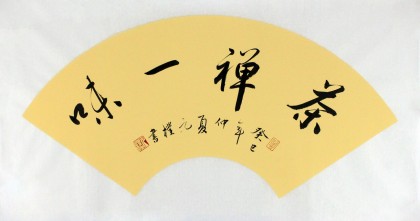 茶禅一味
癸巳年仲夏元樸書